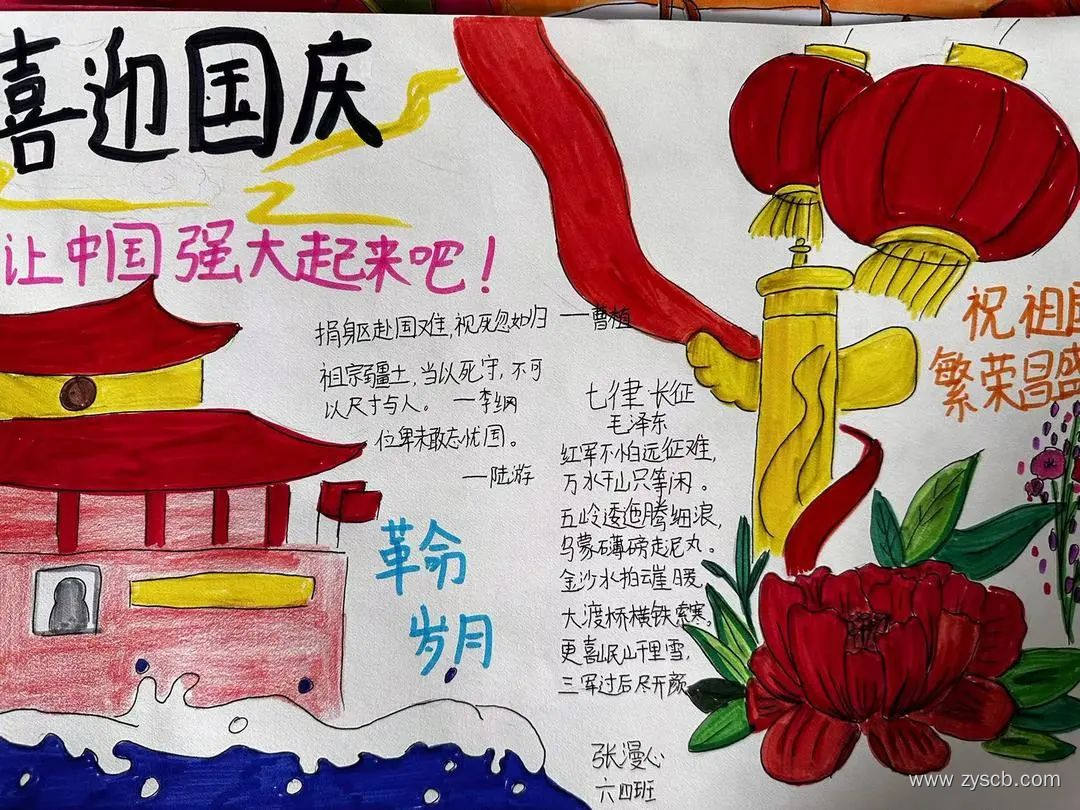 喜迎国庆
让中国强大起来吧！
捐身区赴国难,视死忽如归——曹植
祖宗疆土,当以死守,不可
以尺寸与人。—李纲
位卑未敢忘忧国。
—陆游
革命
岁月
七律 长征
毛泽东
红军不怕远征难,
万水千山只等闲。
五岭逶迤腾细浪,
乌蒙磅礴走泥丸。
金沙水拍崖暖
大渡桥横铁索寒,
更喜岷山千里雪,
三军过后尽开颜
张漫心
六四班
祝祖国
繁荣昌盛
www.zyscb.com